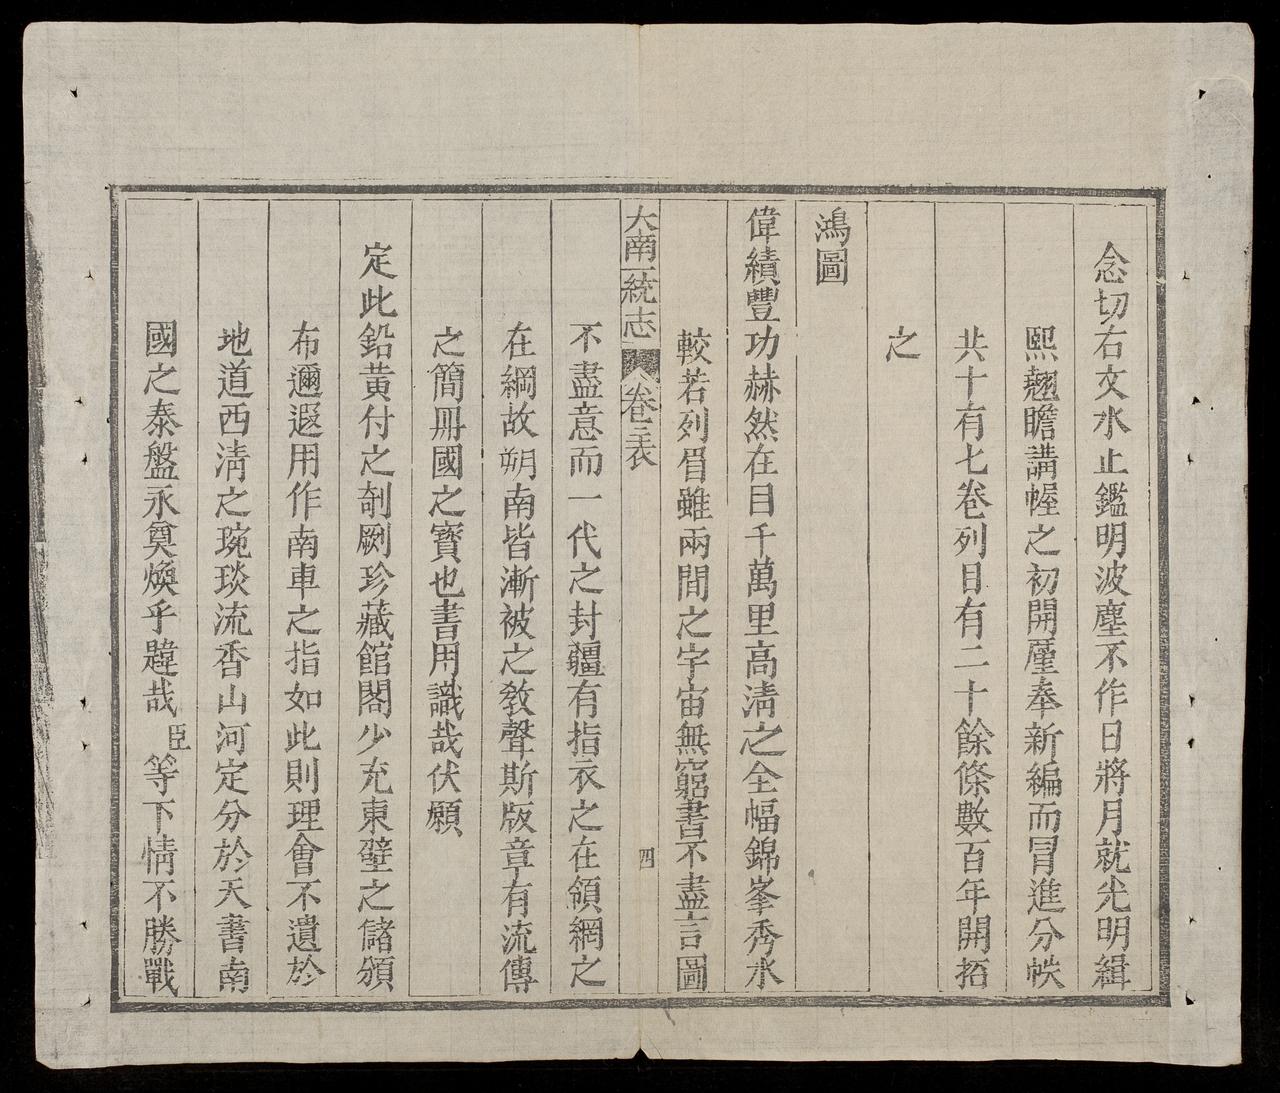 念切右文水止鑑明波塵不作日將月就光明緝
熙翹瞻講幄之初開屢奉新編而冒進分帙
共十有七卷列目有二十餘條數百年開拓
之
鴻圖
偉績豐功赫然在目千萬里高淸之全幅錦峯秀水
較若列眉雖兩間之宇宙無窮書不盡言圖
大南一統志 卷之表 四
不盡意而一代之封疆有指示之在領綱之
在綱故朔南皆漸被之敎聲斯版章有流傳
之簡冊國之寶也書用識哉伏願
定此鉛黃付之剞劂珍藏館閣少充東壁之儲頒
布邇遐用作南車之指如此則理會不遺於
地道西淸之琬琰流香山河定分於天書南
國之泰盤永奠煥乎韙哉臣等下情不勝戰